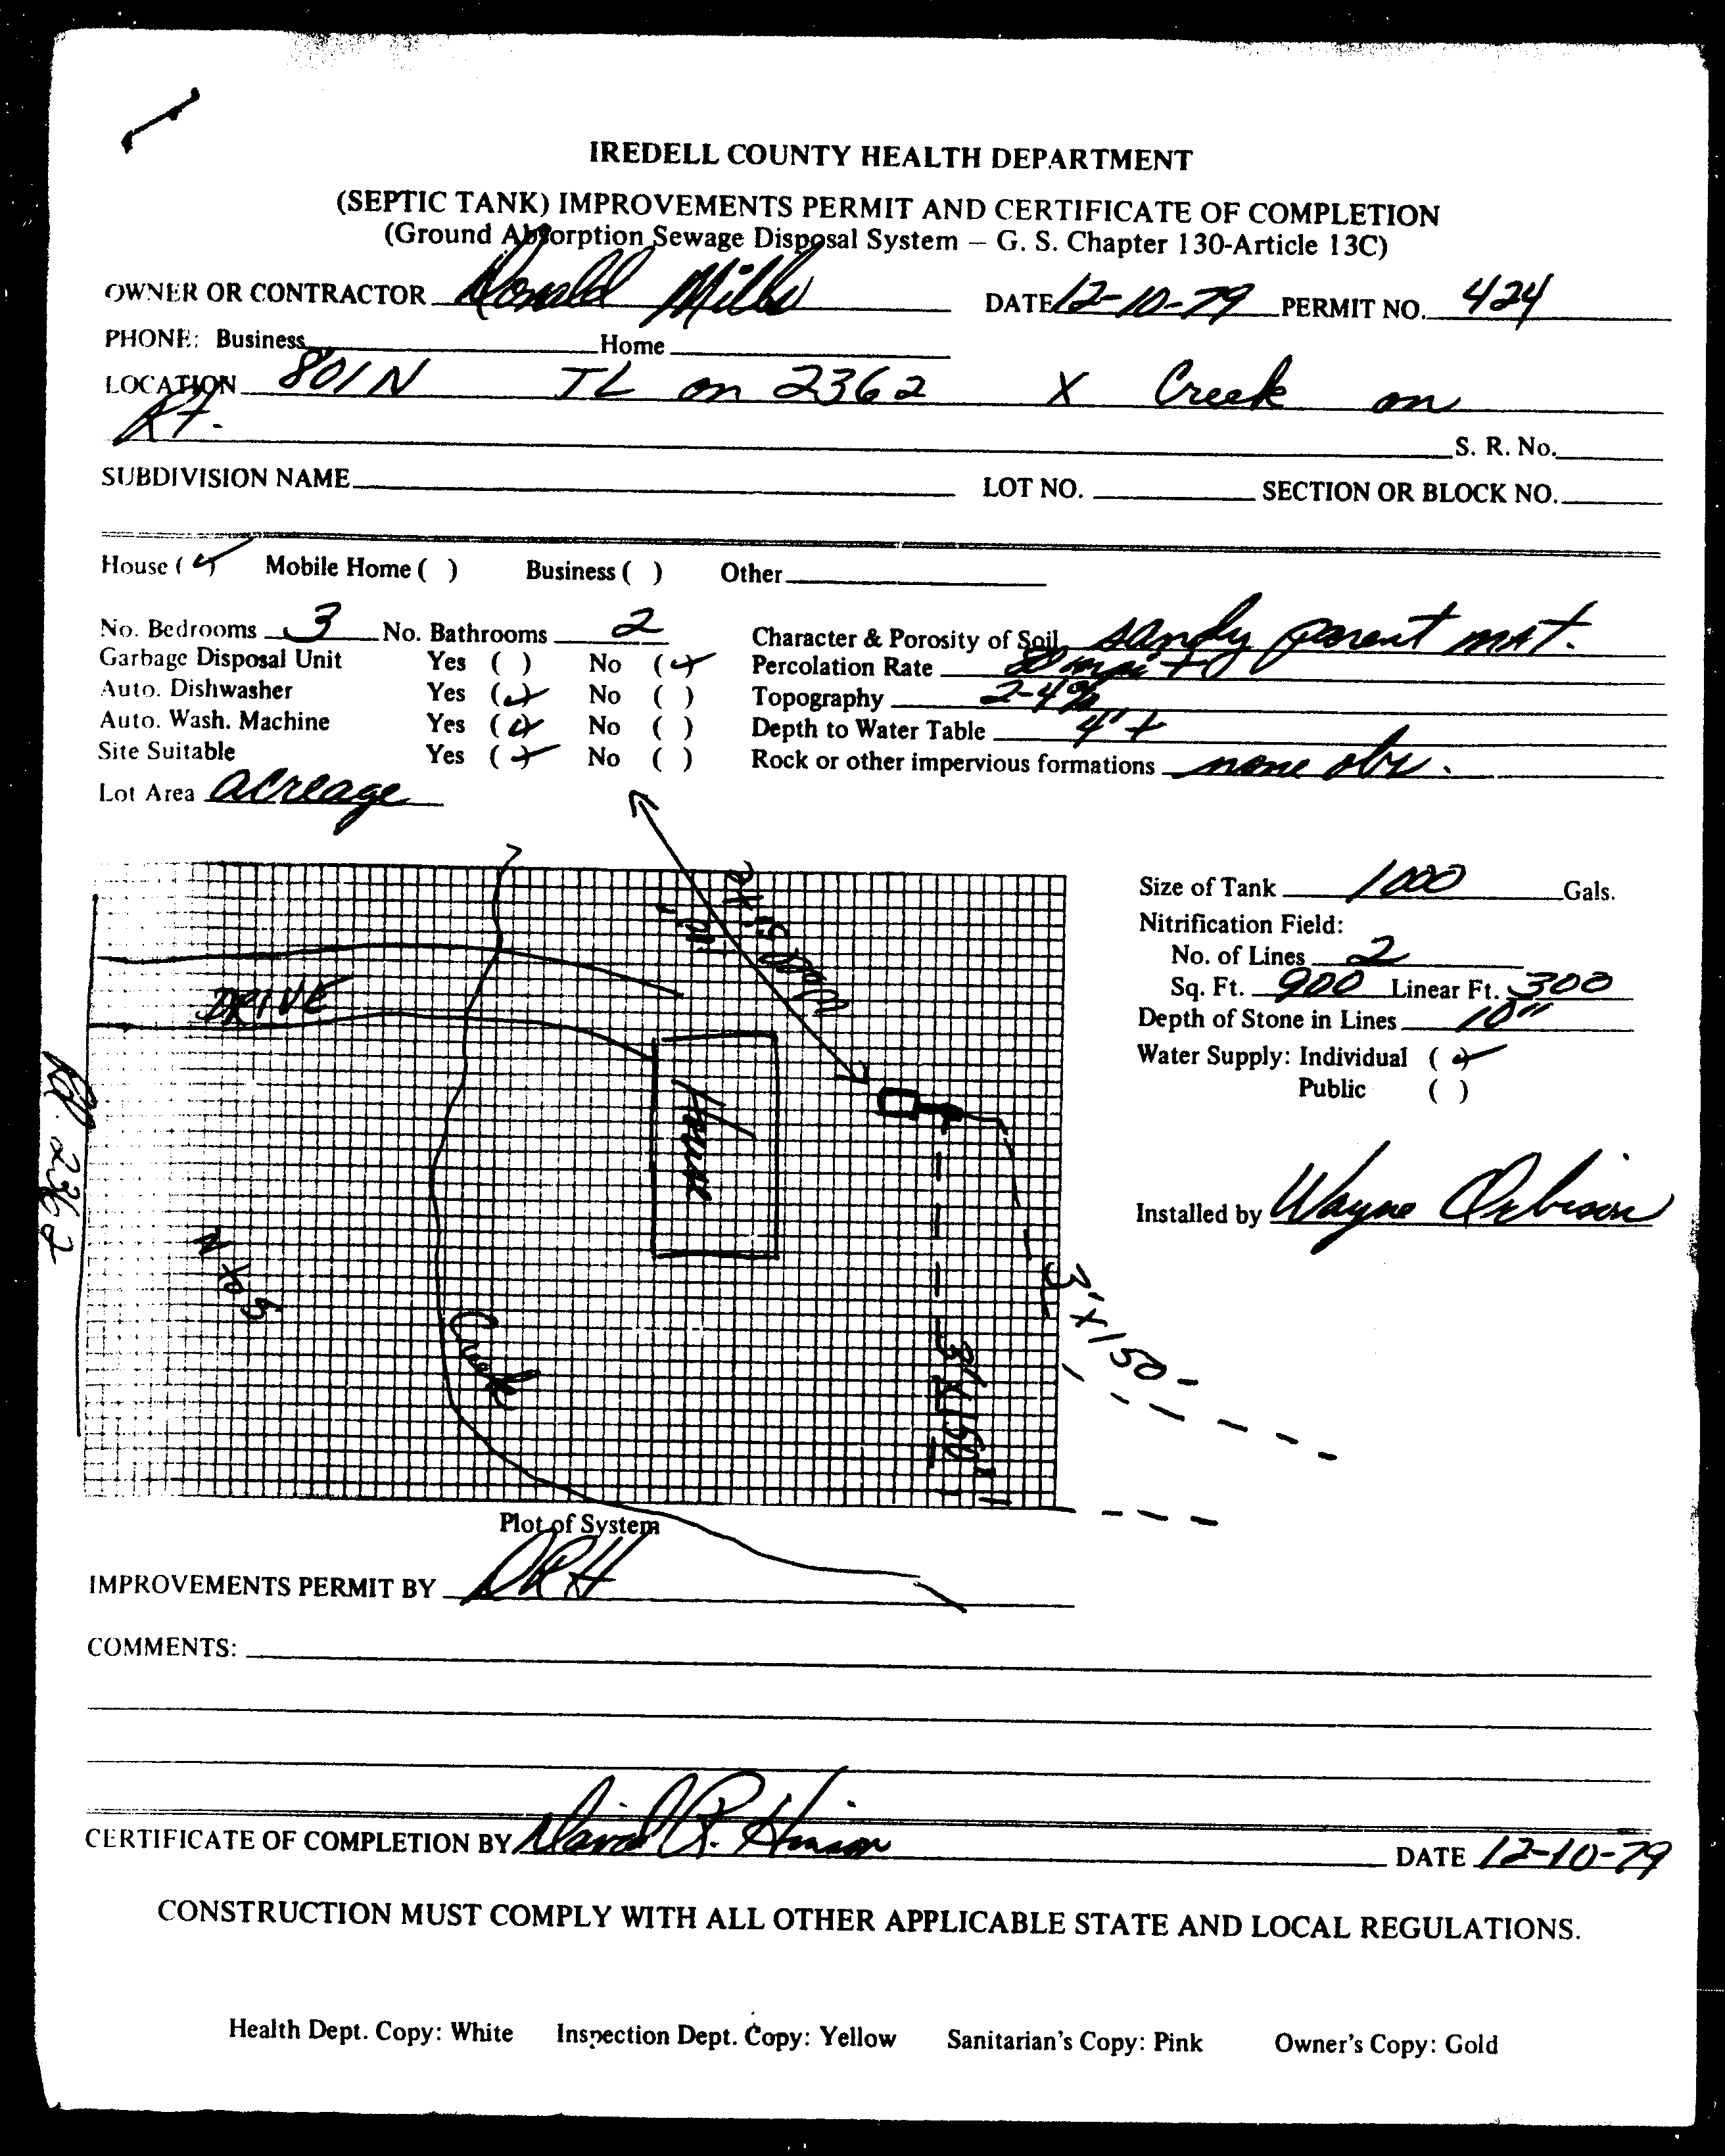 IREDELL COUNTY HEALTH DEPARTMENT
(SEPTIC TANK) IMPROVEMENTS PERMIT AND CERTIFICATE OF COMPLETION
(Ground Absorption Sewage Disposal System – G. S. Chapter 130-Article 13C)
OWNER OR CONTRACTOR Donald Mills DATE 12-10-79 PERMIT NO. 424
PHONE: Business Home
LOCATION 801 N TL on 2362 X Creek on
Rt.
S. R. No.
SUBDIVISION NAME LOT NO. SECTION OR BLOCK NO.
House (✓) Mobile Home ( ) Business ( ) Other
No. Bedrooms 3 No. Bathrooms 2 Character & Porosity of Soil sandy parent mat.
Garbage Disposal Unit Yes ( ) No (✓) Percolation Rate
Auto. Dishwasher Yes (✓) No ( ) Topography 2-4%
Auto. Wash. Machine Yes (✓) No ( ) Depth to Water Table 4'+
Site Suitable Yes (✓) No ( ) Rock or other impervious formations none obs.
Lot Area acreage
Size of Tank 1000 Gals.
Nitrification Field:
No. of Lines 2
Sq. Ft. 900 Linear Ft. 300
Depth of Stone in Lines 10"
Water Supply: Individual (✓)
Public ( )
Installed by Wayne Orbison
DRIVE
House
Creek
Rd. 2362
3'x150
3'x150'
Plot of System
IMPROVEMENTS PERMIT BY DRH
COMMENTS:
CERTIFICATE OF COMPLETION BY David R. Hinson DATE 12-10-79
CONSTRUCTION MUST COMPLY WITH ALL OTHER APPLICABLE STATE AND LOCAL REGULATIONS.
Health Dept. Copy: White Inspection Dept. Copy: Yellow Sanitarian's Copy: Pink Owner's Copy: Gold